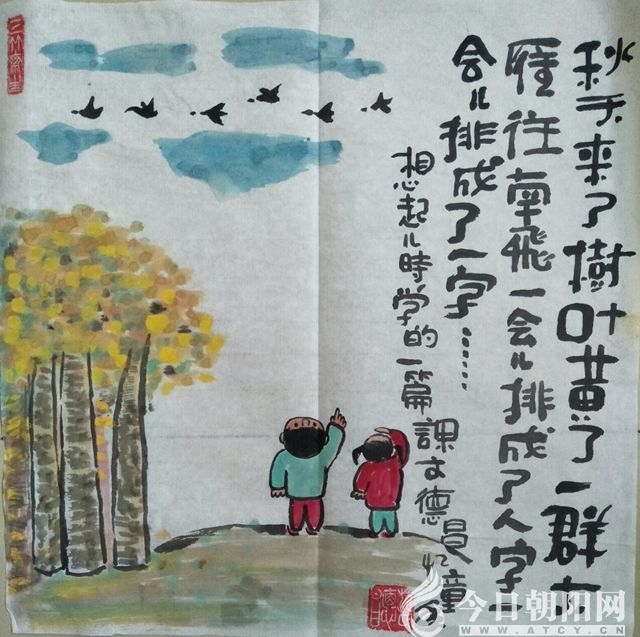 秋天来了樹叶黄了一群大
雁往南飛一会儿排成了人字一
会儿排成了一字……
想起儿時学的一篇課文德
忆童
今日朝阳网
WWW.ATCY.CN